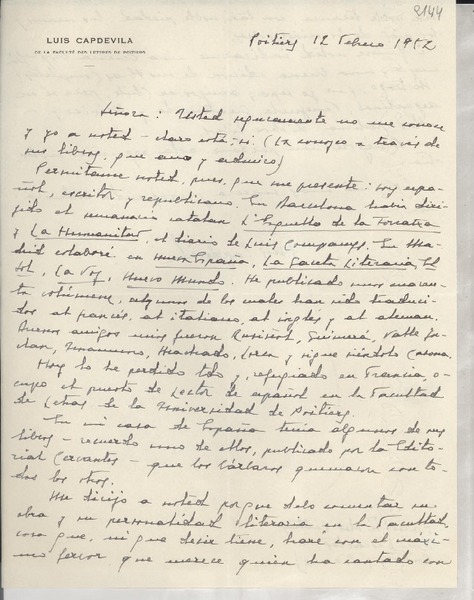 2144
LUIS CAPDEVILA
DE LA FACULTÉ DES LETTRES DE POITIERS
Poitiers 12 Febrero 1952
Señora: Usted seguramente no me conoce
y yo a usted - claro está - sí. (La conozco a través de
sus libros, que amo y admiro)
Permítame usted, pues, que me presente: soy espa-
ñol, escritor y republicano. En Barcelona había diri-
gido el semanario catalán L'Esquella de la Torratxa
y La Humanitat, el diario de Luis Companys. En Ma-
drid colaboré en Nueva España, La Gaceta Literaria, El
Sol, La Voz, Nuevo Mundo. He publicado unos cuaren-
ta volúmenes, algunos de los cuales han sido traduci-
dos al francés, al italiano, al inglés y al alemán.
Buenos amigos míos fueron Rusiñol, Guimerá, Valle In-
clan, Unamuno, Machado, Lorca y sigue siéndolo Casona.
Hoy lo he perdido todo y, refugiado en Francia, o-
cupo el puesto de Lector de español en la Facultad
de Letras de la Universidad de Poitiers.
En mi casa de España tenía algunos de sus
libros - recuerdo uno de ellos, publicado por la Edito-
rial Cervantes - que los bárbaros quemaron con to-
dos los otros.
Me dirijo a usted porque debo comentar su
obra y su personalidad literaria en la Facultad,
cosa que, ni que decir tiene, haré con el máxi-
mo fervor que merece quien ha cantado con